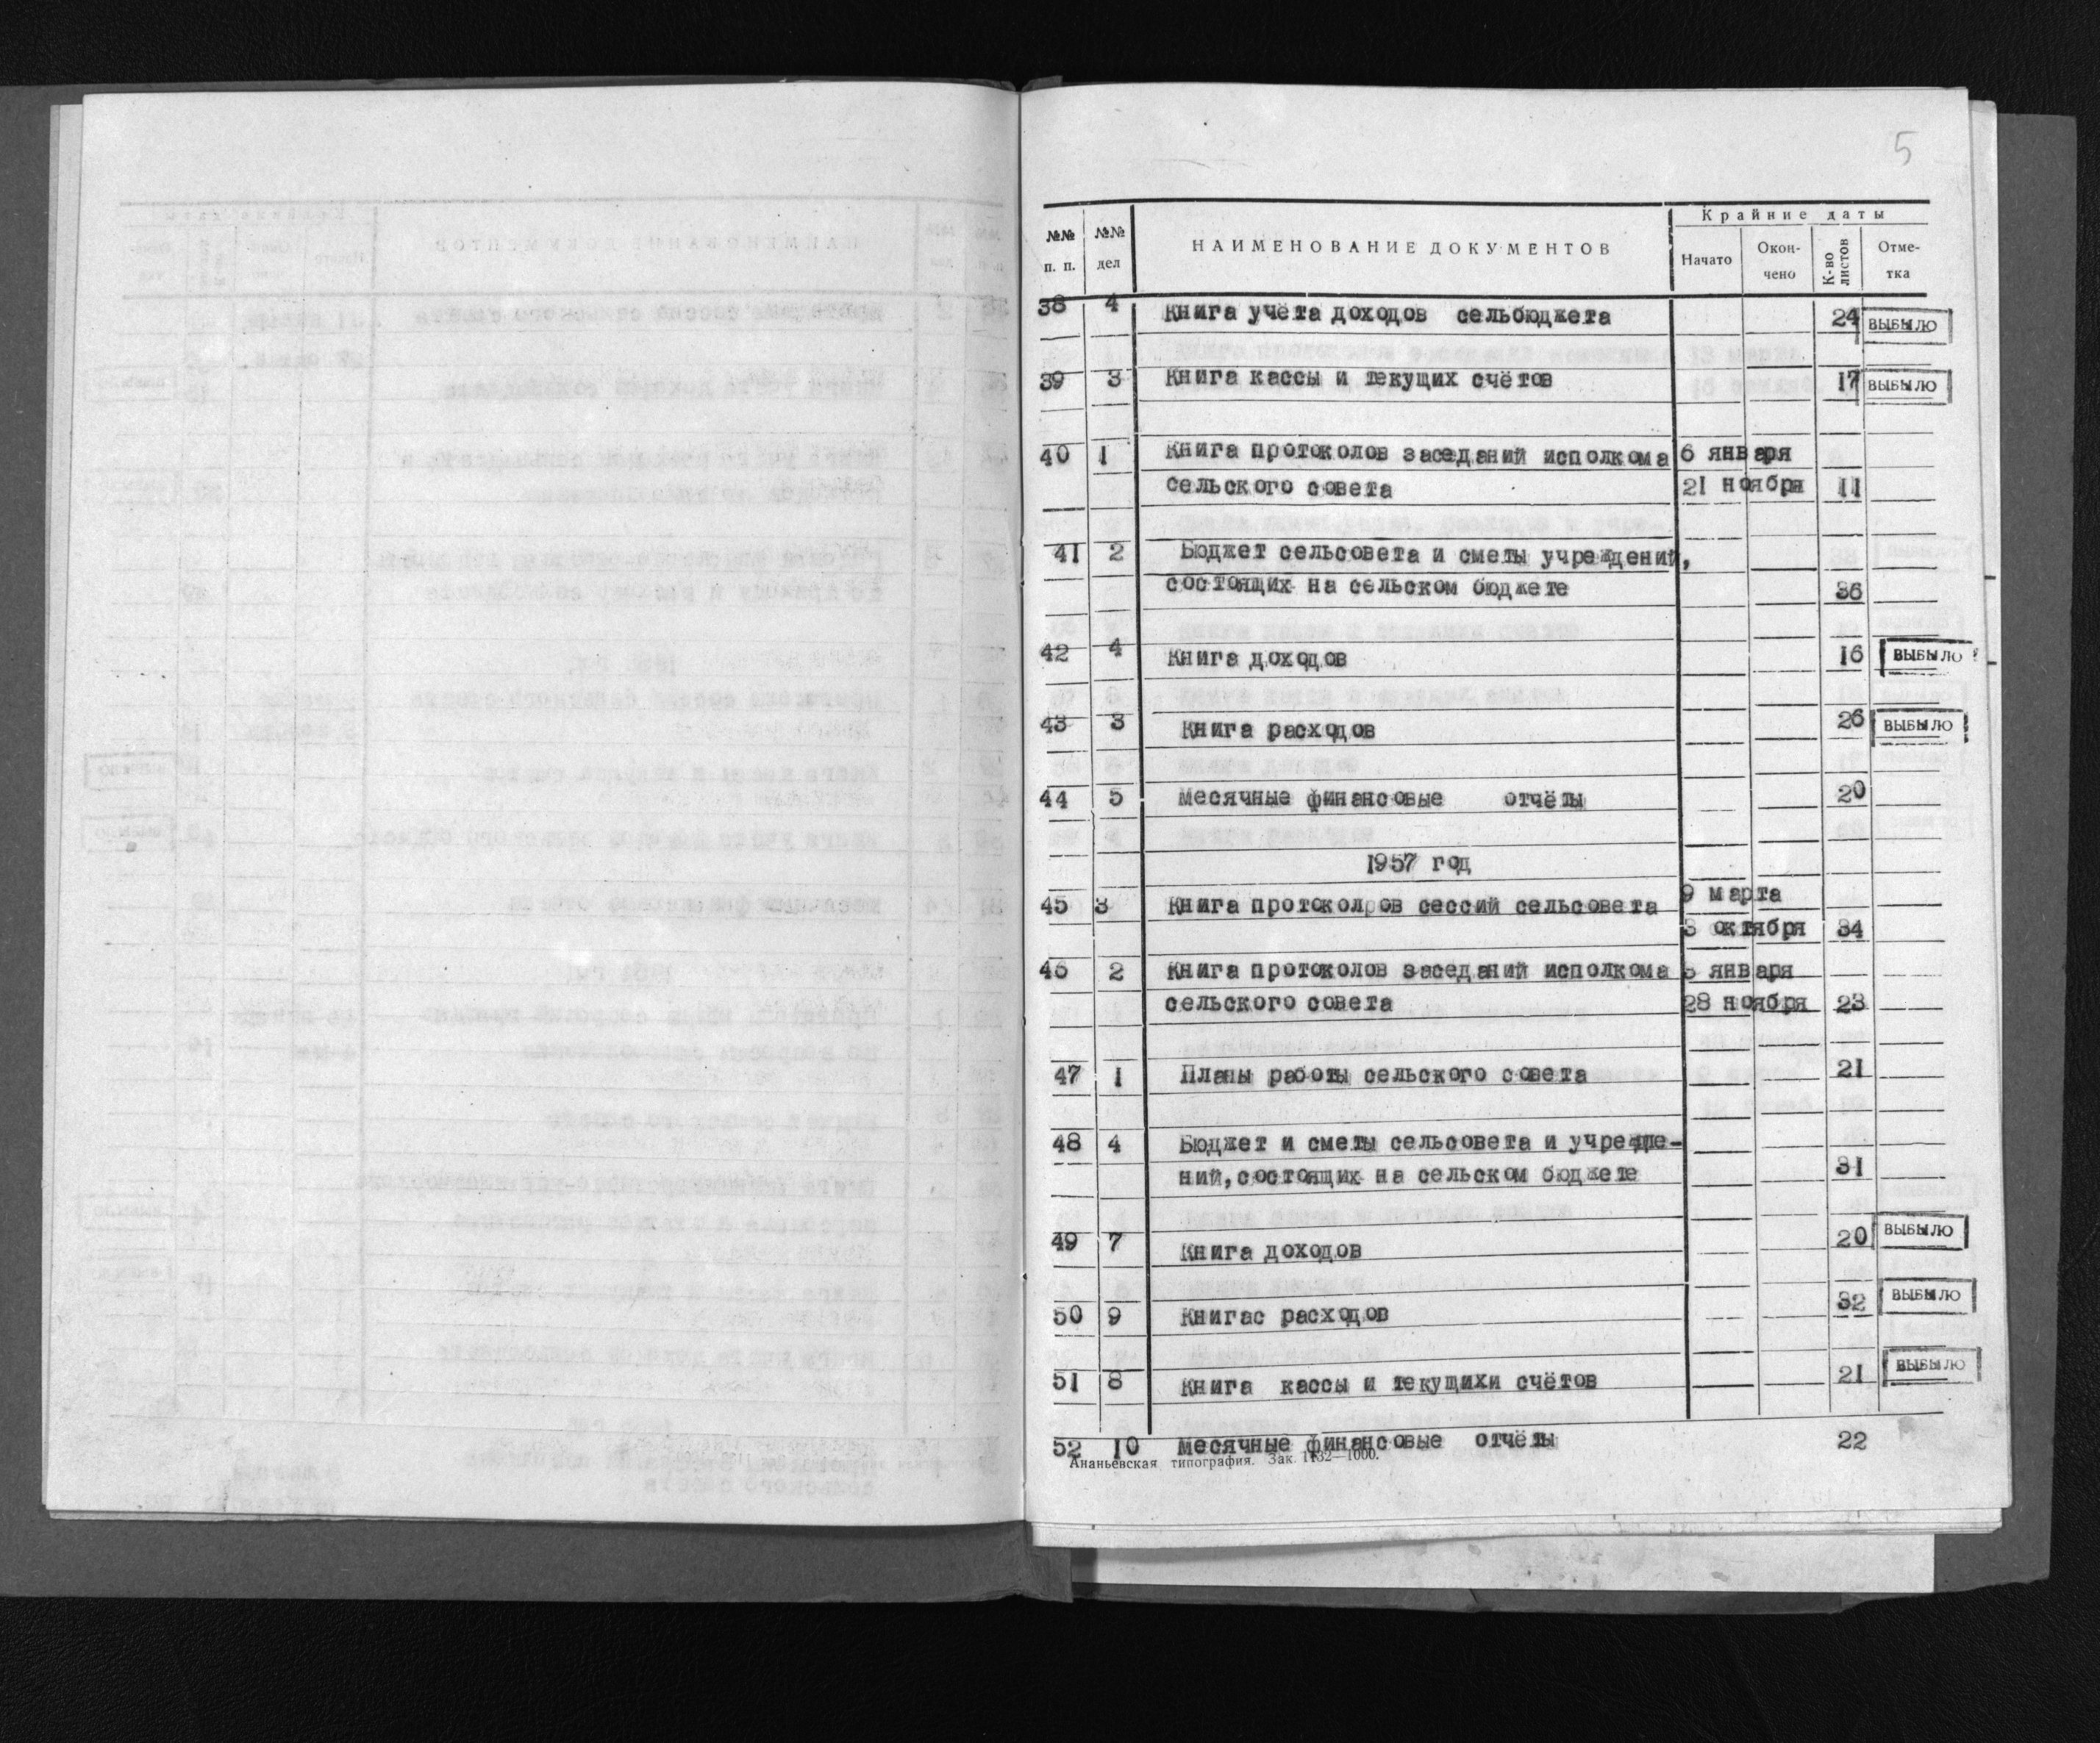 5
Крайние даты
№№ №№ НАИМЕНОВАНИЕ ДОКУМЕНТОВ Начато Окон- К-во листов Отме-
п. п. дел чено тка
38 4 Книга учёта доходов сельбюджета 24 ВЫБЫЛО
39 3 Книга кассы и текущих счётов 17 ВЫБЫЛО
40 1 Книга протоколов заседаний исполкома 6 января
сельского совета 21 ноября 11
41 2 Бюджет сельсовета и сметы учреждений,
состоящих на сельском бюджете 36
42 4 Книга доходов 16 ВЫБЫЛО
43 3 Книга расходов 26 ВЫБЫЛО
44 5 Месячные финансовые отчёты 20
1957 год
45 3 Книга протоколров сессий сельсовета 9 марта
3 октября 34
46 2 Книга протоколов заседаний исполкома 5 января
сельского совета 28 ноября 23
47 1 Планы работы сельского совета 21
48 4 Бюджет и сметы сельсовета и учрежде-
ний,состоящих на сельском бюджете 31
49 7 Книга доходов 20 ВЫБЫЛО
50 9 Книгас расходов 32 ВЫБЫЛО
51 8 Книга кассы и текущихи счётов 21 ВЫБЫЛО
52 10 Месячные финансовые отчёты 22
Ананьевская типография. Зак. 1132—1000.